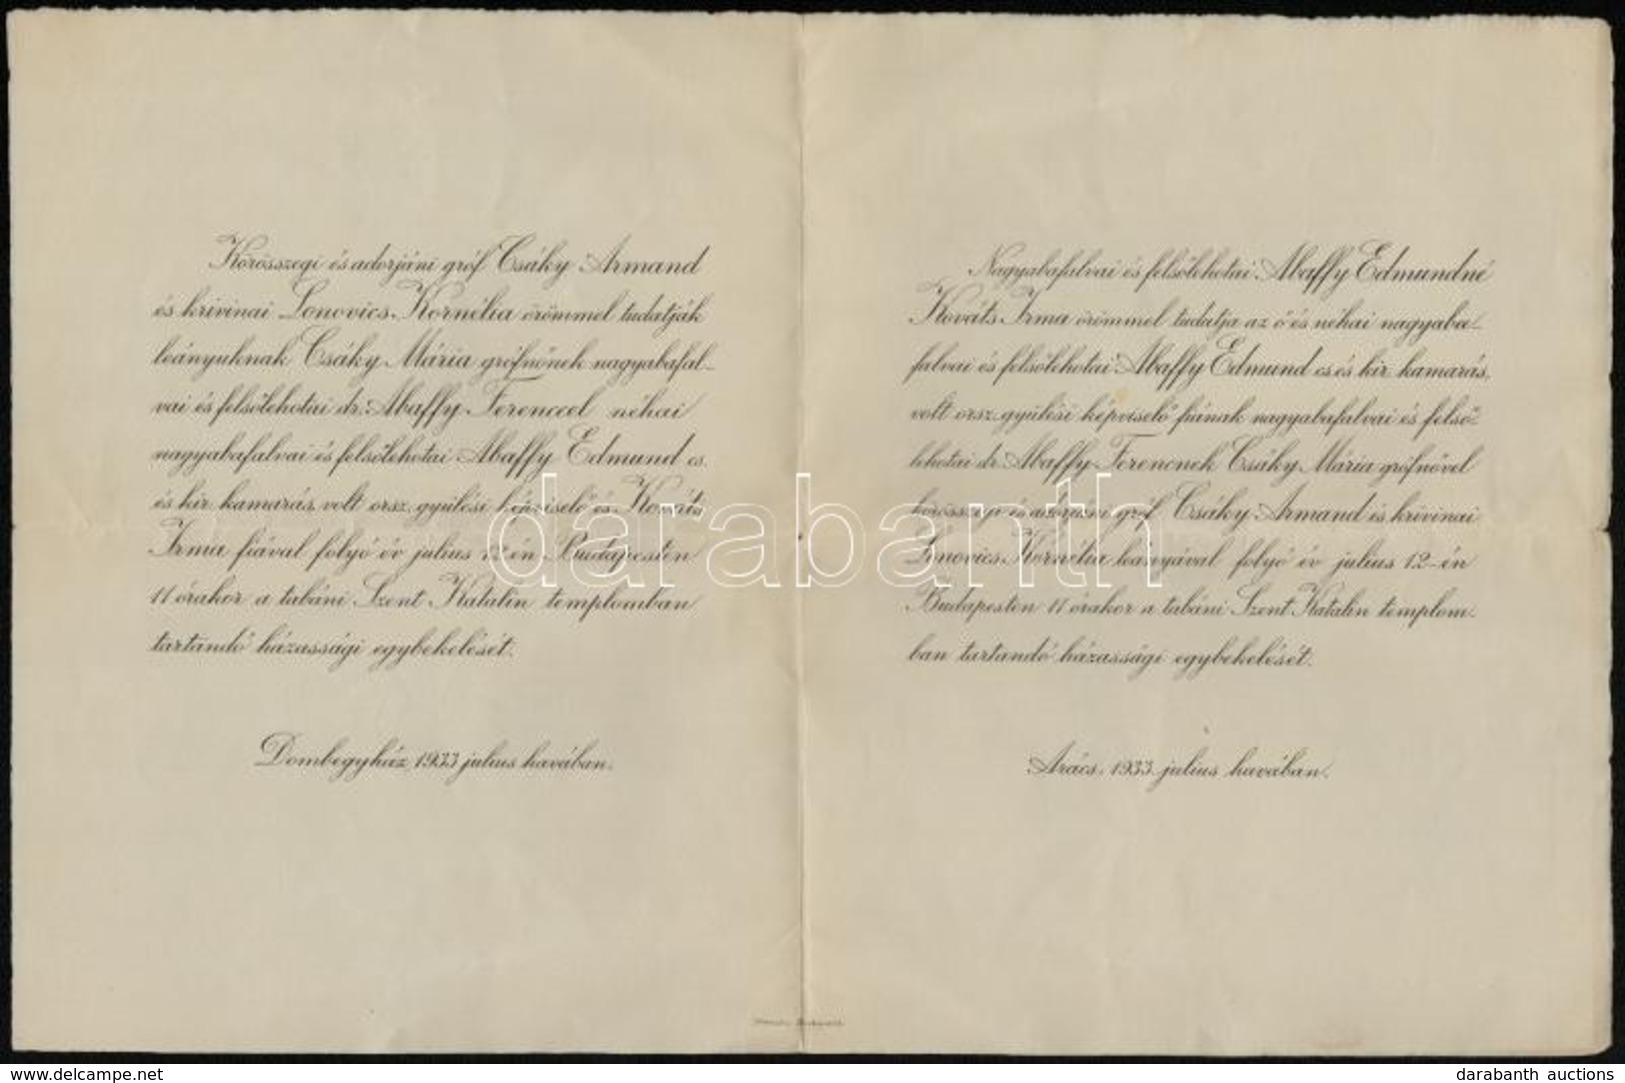 Körösszegi és adorjáni gróf Csáky Armand
és krivinai Lonovics Kornélia örömmel tudatják
leányuknak Csáky Mária grófnőnek nagyabafal-
vai és felsőlehotai dr. Abaffy Ferenccel néhai
nagyabafalvai és felsőlehotai Abaffy Edmund cs.
és kir. kamarás, volt orsz. gyülési képviselő és Kováts
Irma fiával folyó év julius 12-én Budapesten
11 órakor a tabáni Szent Katalin templomban
tartandó házassági egybekelését.
Dombegyház, 1933 julius havában.
Nagyabafalvai és felsőlehotai Abaffy Edmundné
Kováts Irma örömmel tudatja az ő és néhai nagyaba-
falvai és felsőlehotai Abaffy Edmund cs és kir. kamarás,
volt orsz. gyülési képviselő fiának nagyabafalvai és felső-
lehotai dr. Abaffy Ferencnek Csáky Mária grófnővel
körösszegi és adorjáni gróf Csáky Armand és krivinai
Lonovics Kornélia leányával folyó év julius 12-én
Budapesten 11 órakor a tabáni Szent Katalin templom-
ban tartandó házassági egybekelését.
Arács, 1933. julius havában.
darabanth
www.delcampe.net
darabanth auctions